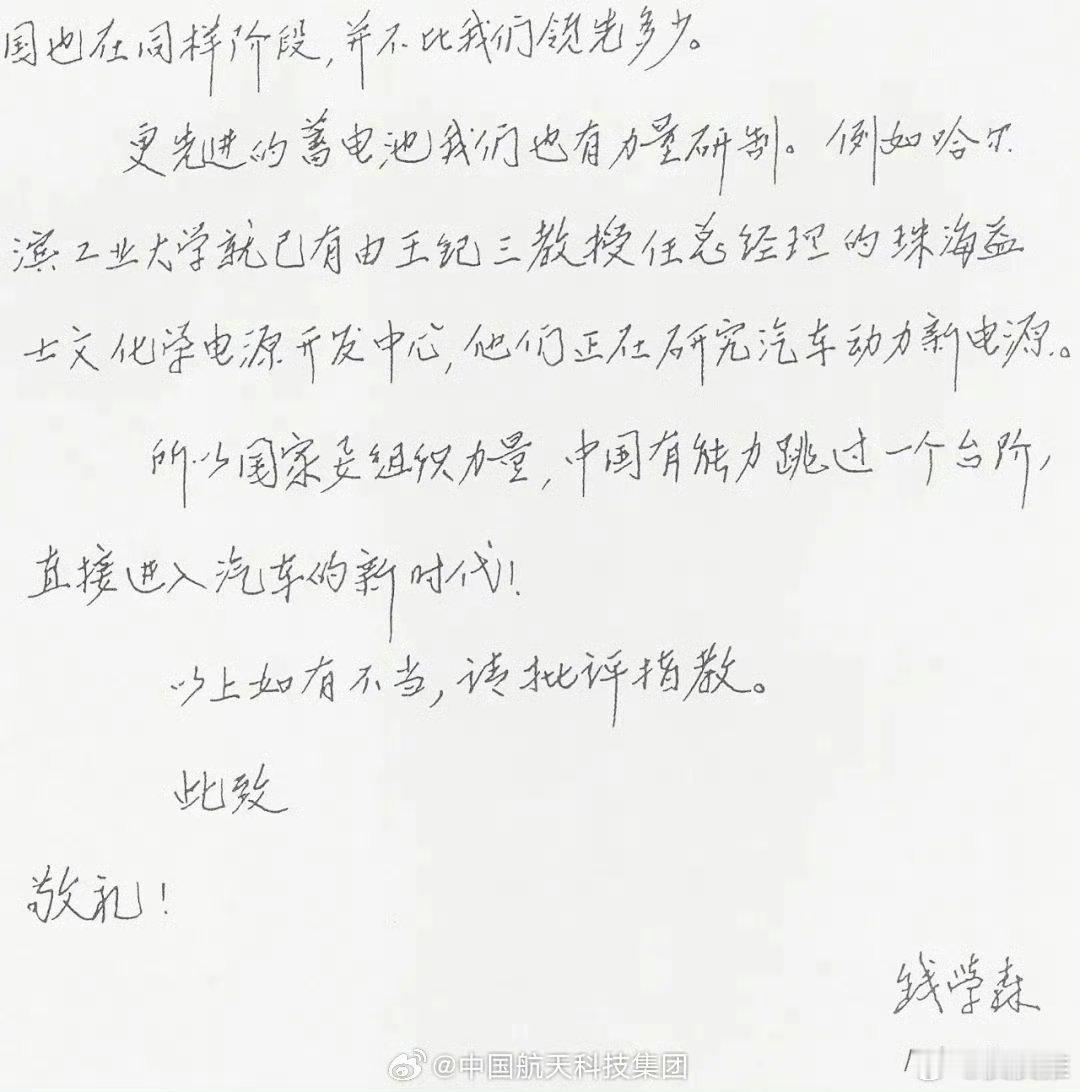 国也在同样阶段,并不比我们领先多少。
更先进的蓄电池我们也有力量研制。例如哈尔
滨工业大学就已有由王纪三教授任总经理的珠海益
士文化学电源开发中心,他们正在研究汽车动力新电源。
所以国家要组织力量,中国有能力跳过一个台阶,
直接进入汽车的新时代!
以上如有不当,请批评指教。
此致
敬礼!
钱学森
@中国航天科技集团